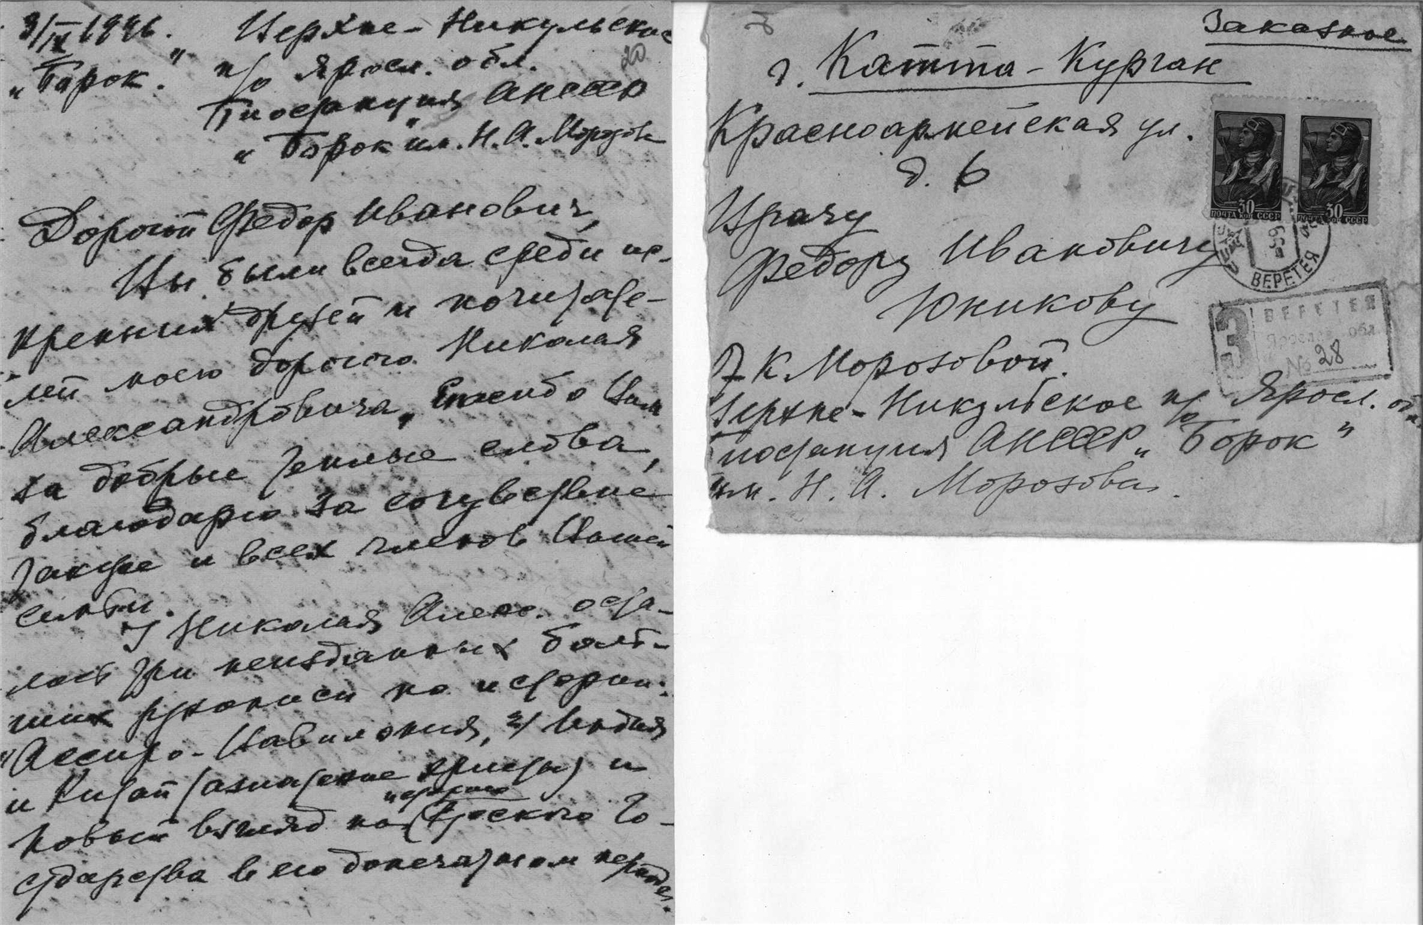 3/IX 1946.
Верхне-Никульское
20.
"Борок."
п/о Яросл. обл.
Биостанция АНСССР
"Борок" им. Н.А. Морозова
Дорогой Федор Иванович,
Вы были всегда среди ис-
кренних друзей и почитате-
лей моего дорогого Николая
Александровича, спасибо Вам
за добрые теплые слова,
благодарю за сочувствие
также и всех членов Вашей
семьи.
У Николая Алекс. оста-
лось три неизданных боль-
ших рукописи по истории:
"Ассиро-Вавилония, 2/ Индия
и Китай (азиатские кристы) и
Новый взгляд на историю Русского Го-
сударства в его допечатном периоде.
Заказное
г. Катта-Курган
Красноармейская ул.
д. 6
Врачу
Федору Ивановичу
Юникову
К Морозовой.
Верхне-Никульское п/о Яросл. обл.
Биостанция АНСССР "Борок"
им. Н. А. Морозова.
30 30
ПОЧТА СССР ПОЧТА СССР
ВЕРЕТЕЯ
З ВЕРЕТЕЯ
Яросл. обл.
№ 28